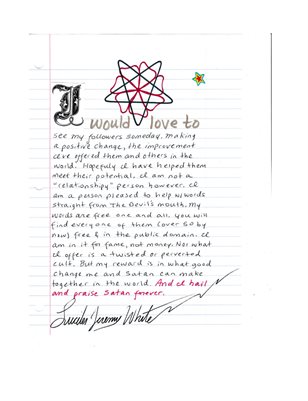 I would love to
see my followers someday. Making
a positive change, the improvement
I've offered them and others in the
world. Hopefully I have helped them
meet their potential. I am not a
"relationshipy" person however. I
am a person pleased to help w/words
straight from the Devil's mouth. My
words are free one and all. You will
find everyone of them (over 50 by
now) free & in the public domain. I
am in it for fame, not money. Nor what
I offer is a twisted or perverted
cult. But my reward is in what good
change me and Satan can make
together in the world. And I hail
and praise Satan forever.
Jeremy White